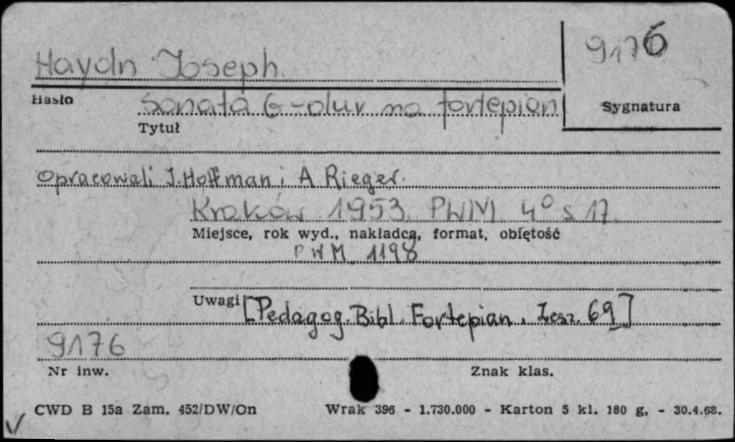 Haydn Joseph
9176
Hasło
Sonata G-dur na fortepian
Sygnatura
Tytuł
opracowali J. Hoffman i A. Rieger.
Kraków 1953. PWM. 4° s 17.
Miejsce, rok wyd., nakładca, format, objętość
PWM 1198
Uwagi [Pedagog. Bibl. Fortepian. Zesz. 69]
9176
Nr inw.
Znak klas.
CWD B 15a Zam. 452/DW/On
Wrak 396 - 1.730.000 - Karton 5 kl. 180 g. - 30.4.68.